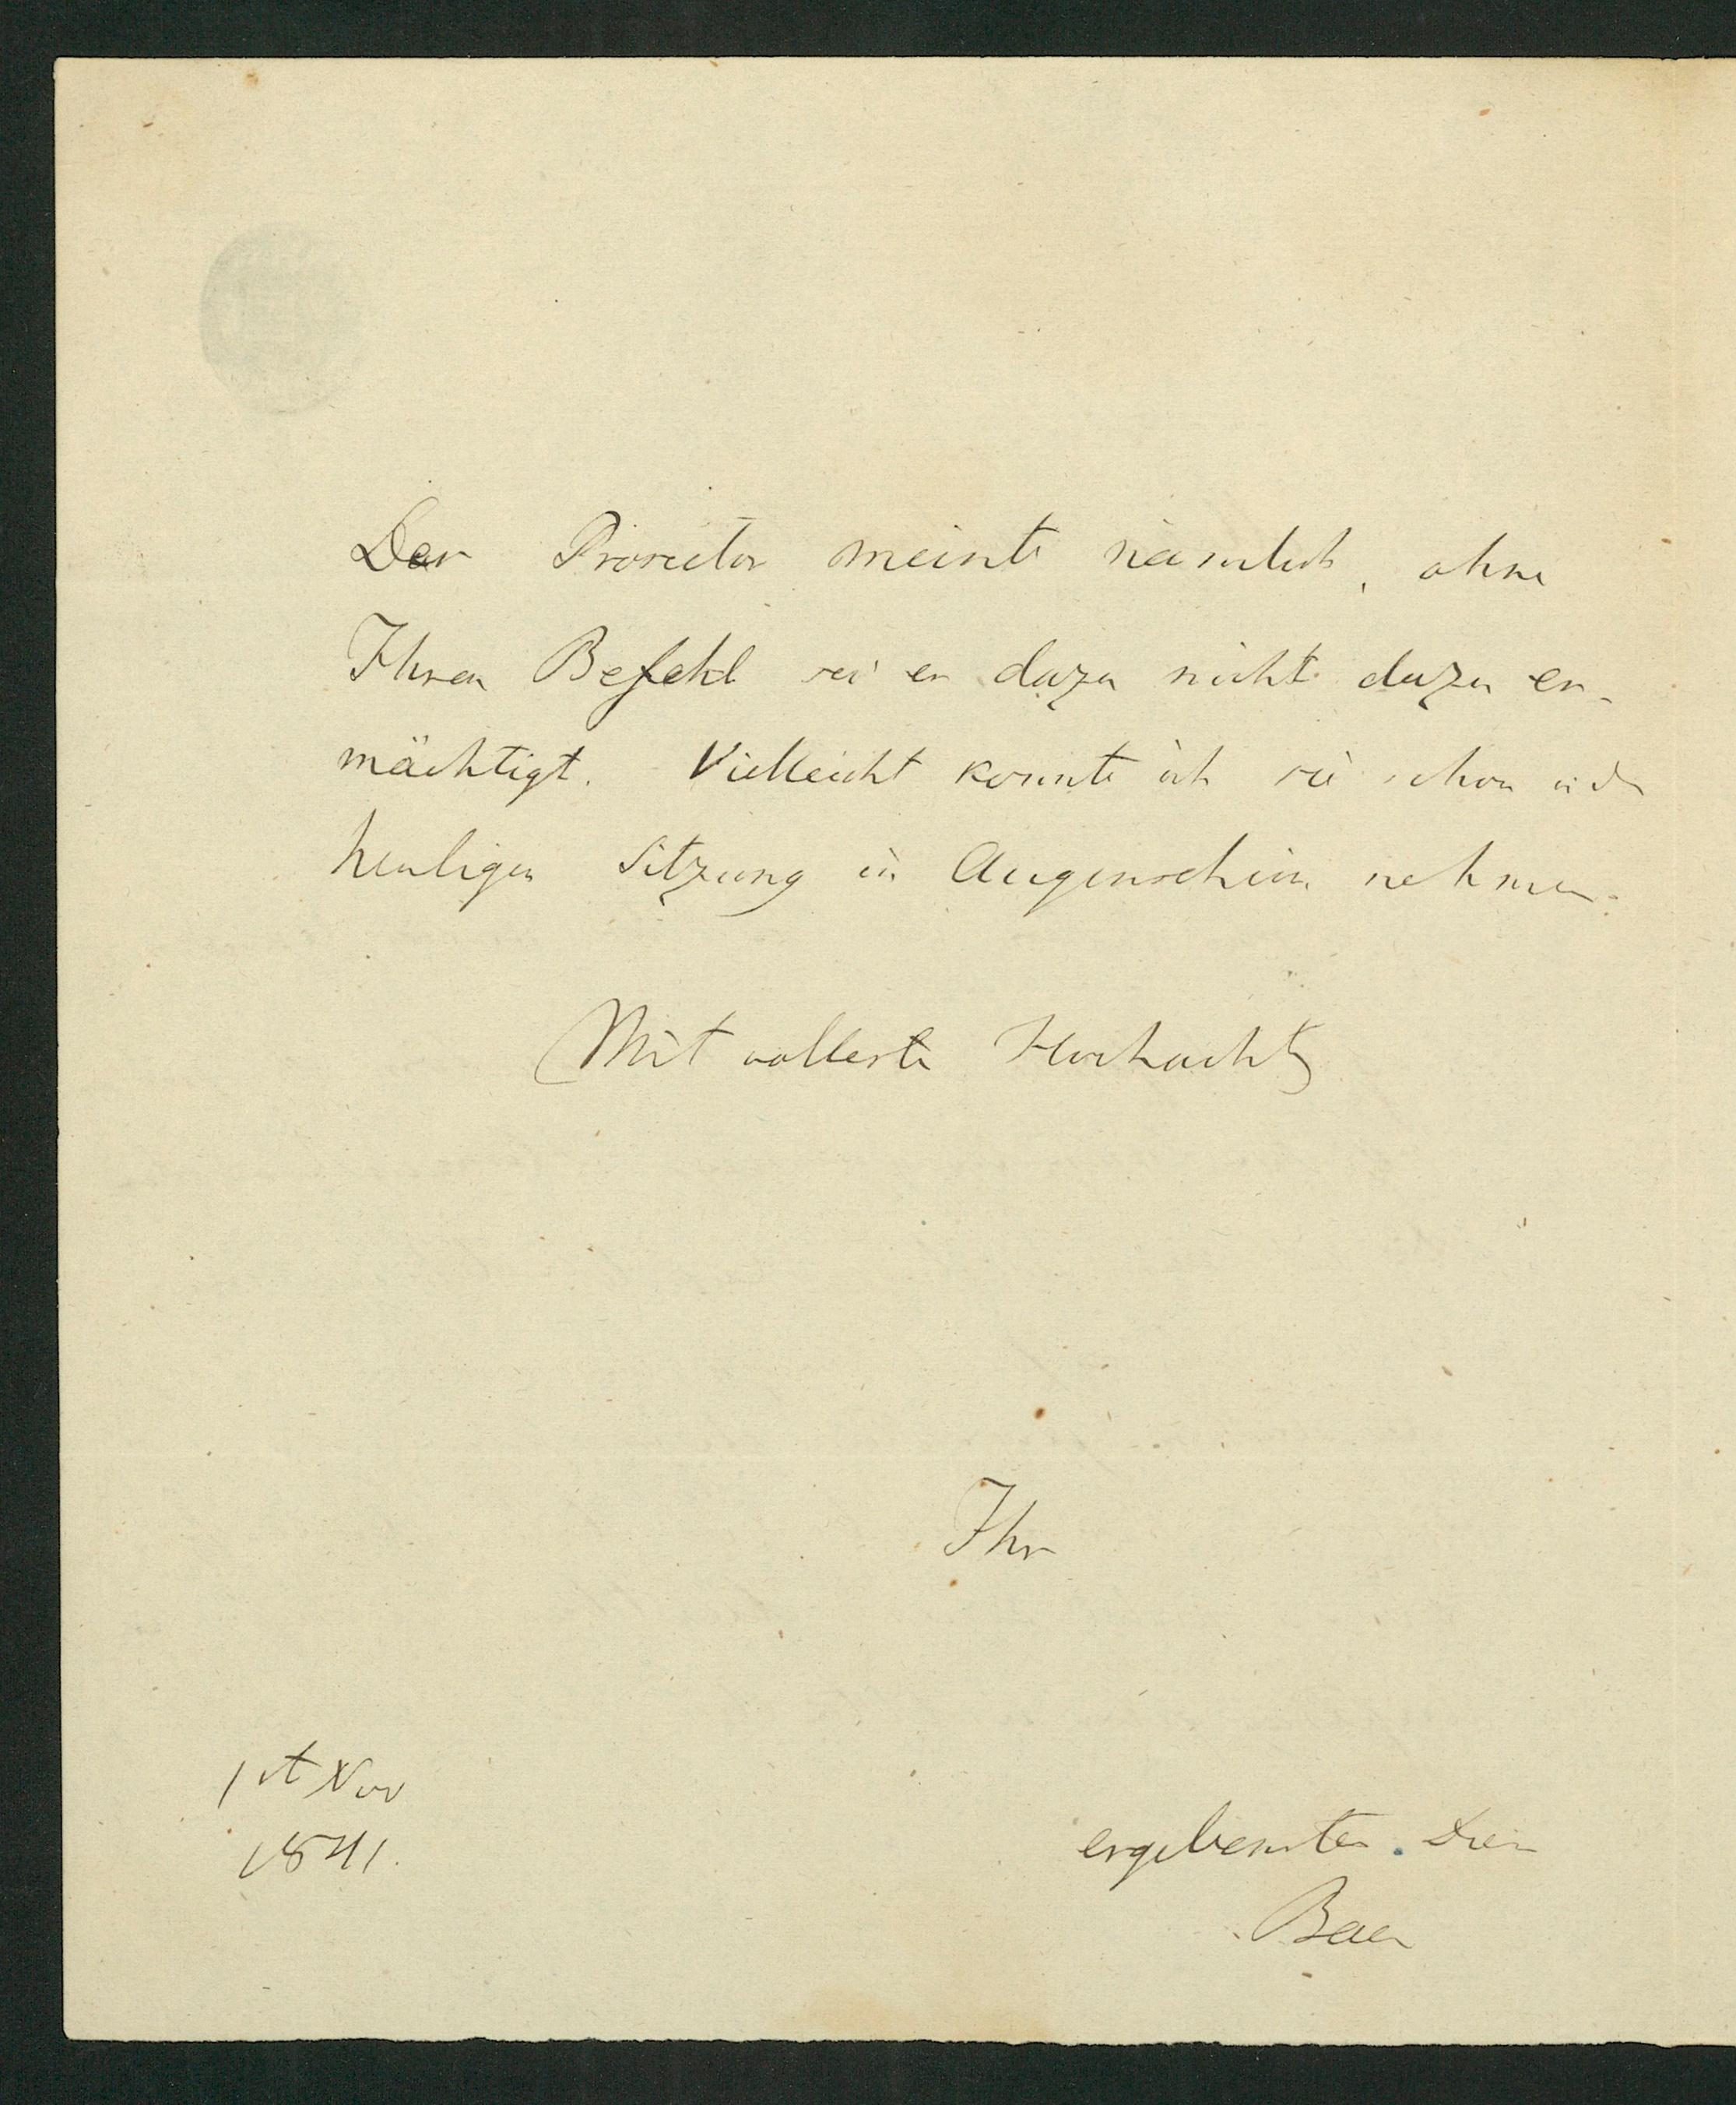 Der Prorector meint nämlich, ohne
Ihren Befehl sei er dazu nicht dazu er-
mächtigt. Vielleicht konnte ich sie schon in der
heutigen Sitzung in Augenschein nehmen.
Mit vollester Hochacht
Ihr
1st Nov
1841.
ergebenster Dien
Baer